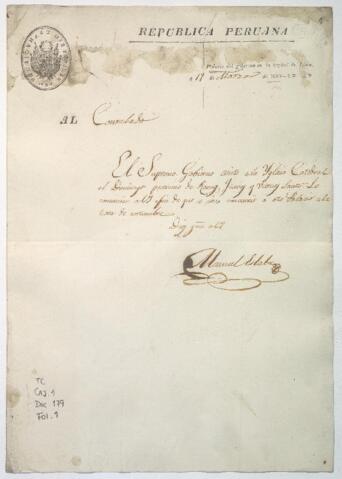 REPUBLICA PERUANA
Palacio del gobierno en la capital de Lima
á 18 de Marzo de
AL Consulado
El Supremo Gobierno asiste a la Yglesia Catedral
el Domingo proximo de Ramos, Jueves y Viernes Santo. Lo
comunico a U a fin de que se sirva concurrir a este Palacio a la
hora de costumbre.
Dios gue. a U
Manuel
TC
Caj. 1
Doc 179
Fol. 1